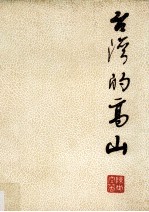 台灣的高山